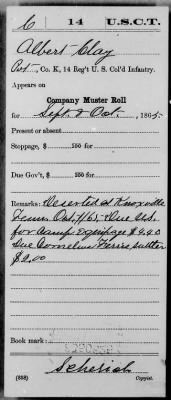 C 14 U.S.C.T.
Albert Clay
Pvt, Co. K, 14 Reg't U. S. Col'd Infantry.
Appears on
Company Muster Roll
for Sept. & Oct., 1865.
Present or absent
Stoppage, $ 100 for
Due Gov't, $ 100 for
Remarks: Deserted at Knoxville
Tenn Oct. 1/65. Due U.S.
for Camp Equipage $4.40
Due Cornelius Ferries, sutler
$9.00
Book mark:
Scherish
(858) Copyist.